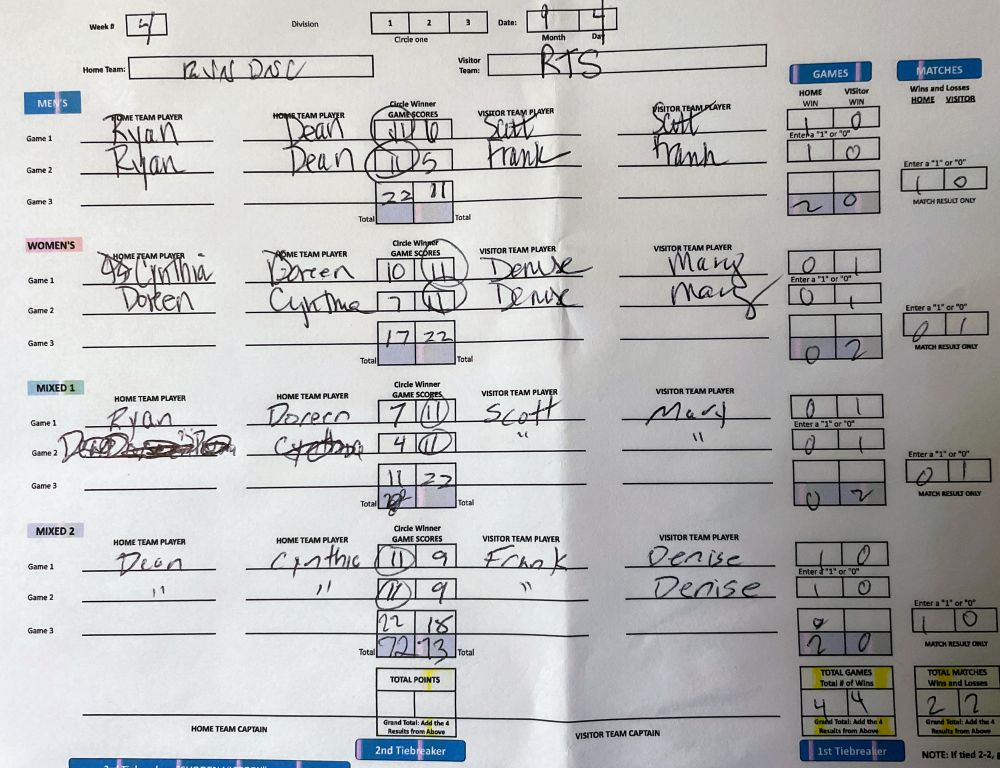 Week # 4 Division 1 2 3 Date: 9 4
Circle one Month Day
Home Team: RVN DNC Visitor Team: RTS
GAMES MATCHES
HOME WIN VISitor WIN Wins and Losses
HOME VISITOR
MEN'S
HOME TEAM PLAYER HOME TEAM PLAYER Circle Winner GAME SCORES VISITOR TEAM PLAYER VISITOR TEAM PLAYER
Game 1 Ryan Dean 11 6 Scott Scott 1 0
Enter a "1" or "0"
Game 2 Ryan Dean 11 5 Frank Frank 1 0
Enter a "1" or "0"
1 0
MATCH RESULT ONLY
Game 3 22 11
Total Total 2 0
WOMEN'S
HOME TEAM PLAYER HOME TEAM PLAYER Circle Winner GAME SCORES VISITOR TEAM PLAYER VISITOR TEAM PLAYER
Game 1 Cynthia Doreen 10 11 Denise Mary 0 1
Enter a "1" or "0"
Game 2 Doreen Cynthia 7 11 Denise Mary 0 1
Enter a "1" or "0"
0 1
MATCH RESULT ONLY
Game 3 17 22
Total Total 0 2
MIXED 1
HOME TEAM PLAYER HOME TEAM PLAYER Circle Winner GAME SCORES VISITOR TEAM PLAYER VISITOR TEAM PLAYER
Game 1 Ryan Doreen 7 11 Scott Mary 0 1
Enter a "1" or "0"
Game 2 4 11 " " 0 1
Enter a "1" or "0"
0 1
MATCH RESULT ONLY
Game 3 11 22
Total Total 0 2
MIXED 2
HOME TEAM PLAYER HOME TEAM PLAYER Circle Winner GAME SCORES VISITOR TEAM PLAYER VISITOR TEAM PLAYER
Game 1 Dean Cynthia 11 9 Frank Denise 1 0
Enter a "1" or "0"
Game 2 " " 11 9 " Denise 1 0
Enter a "1" or "0"
1 0
MATCH RESULT ONLY
Game 3 22 18
Total 72 73 Total 2 0
TOTAL POINTS TOTAL GAMES TOTAL MATCHES
Total # of Wins Wins and Losses
4 4 2 2
HOME TEAM CAPTAIN Grand Total: Add the 4 Results from Above VISITOR TEAM CAPTAIN Grand Total: Add the 4 Results from Above Grand Total: Add the 4 Results from Above
2nd Tiebreaker 1st Tiebreaker NOTE: If tied 2-2,